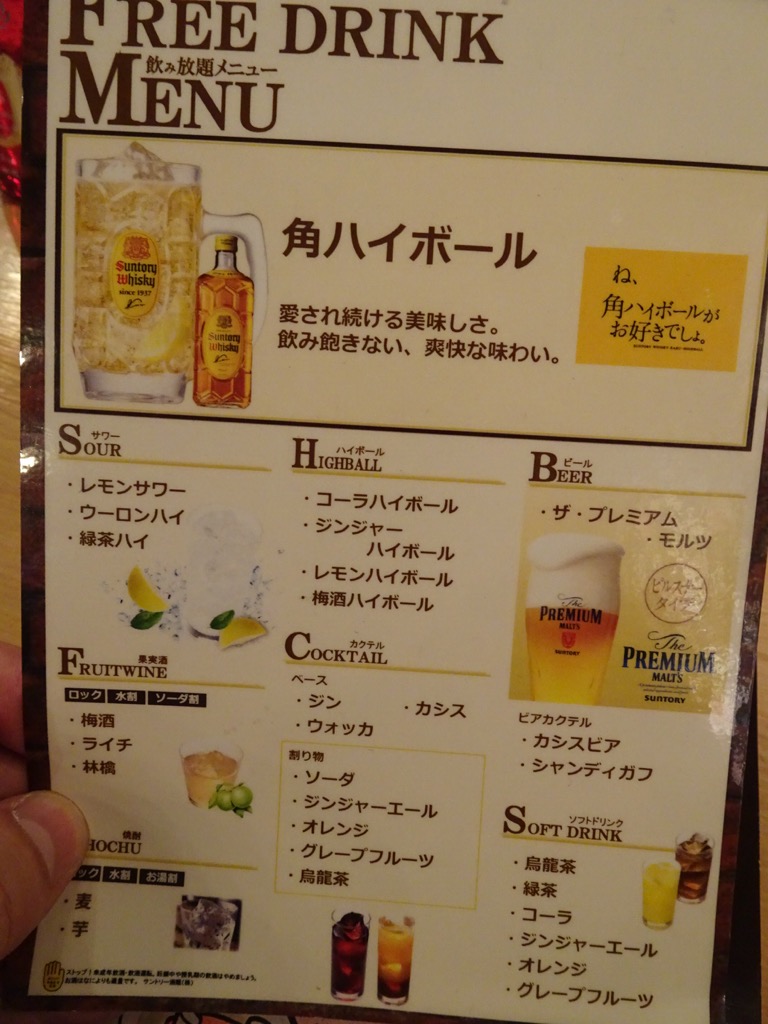 FREE DRINK
飲み放題メニュー
MENU
Suntory
Whisky
since 1937
Suntory
Whisky
角ハイボール
愛され続ける美味しさ。
飲み飽きない、爽快な味わい。
ね、
角ハイボールが
お好きでしょ。
サワー
SOUR
・レモンサワー
・ウーロンハイ
・緑茶ハイ
ハイボール
HIGHBALL
・コーラハイボール
・ジンジャー
ハイボール
・レモンハイボール
・梅酒ハイボール
ビール
BEER
・ザ・プレミアム
・モルツ
The
PREMIUM
MALT'S
SUNTORY
The
PREMIUM
MALT'S
SUNTORY
ビアカクテル
・カシスビア
・シャンディガフ
果実酒
FRUITWINE
ロック 水割 ソーダ割
・梅酒
・ライチ
・林檎
カクテル
COCKTAIL
ベース
・ジン ・カシス
・ウォッカ
割り物
・ソーダ
・ジンジャーエール
・オレンジ
・グレープフルーツ
・烏龍茶
焼酎
HOCHU
ック 水割 お湯割
・麦
・芋
ソフトドリンク
SOFT DRINK
・烏龍茶
・緑茶
・コーラ
・ジンジャーエール
・オレンジ
・グレープフルーツ
ストップ!未成年飲酒・飲酒運転。妊娠中や授乳期の飲酒はやめましょう。
お酒はなによりも適量です。 サントリー酒類(株)